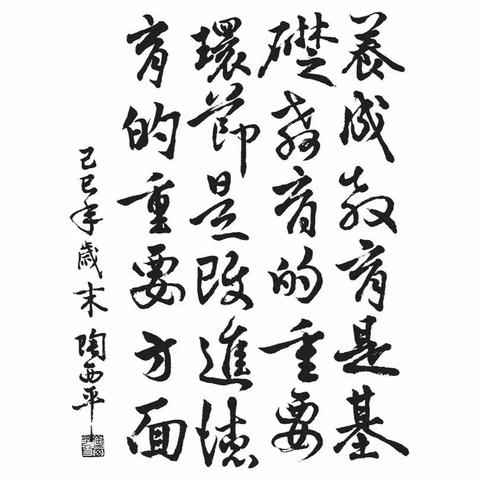 養成教育是基
礎教育的重要
環節是改進德
育的重要方面
己巳年歲末 陶西平